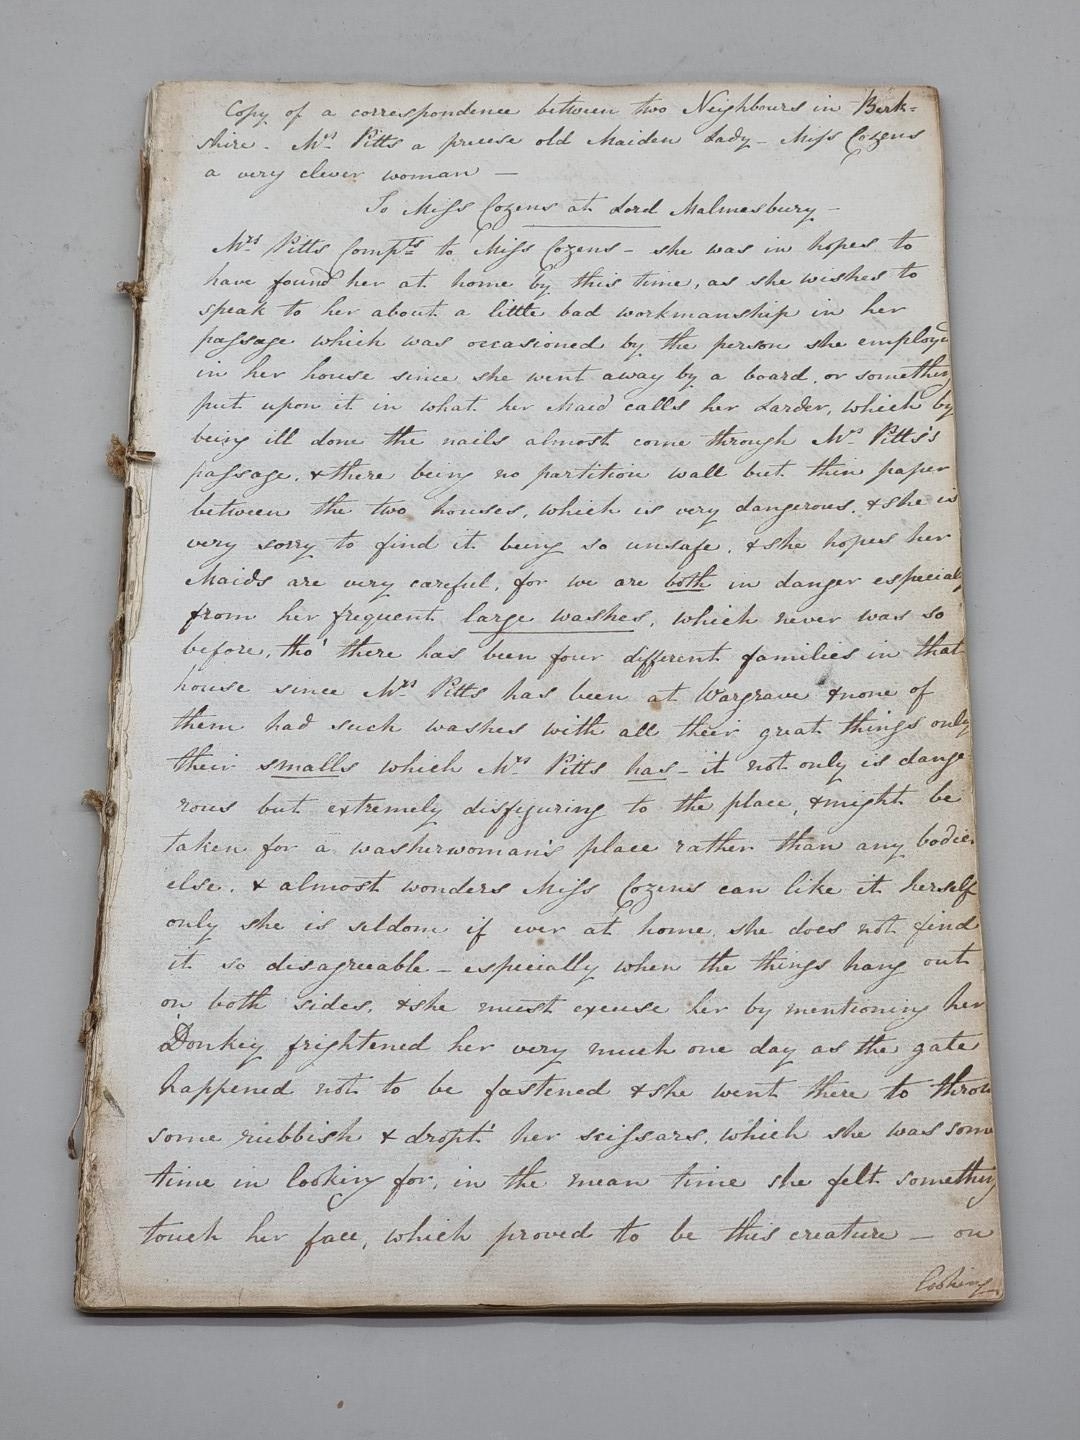 Copy of a correspondence between two Neighbours in Berk=
shire - Mrs Pitts a precise old Maiden Lady - Miss Cozens
a very clever woman -
To Miss Cozens at Lord Malmesbury -
Mrs Pitts Compts to Miss Cozens - she was in hopes to
have found her at home by this time, as she wishes to
speak to her about a little bad workmanship in her
passage which was occasioned by the person she employ'd
in her house since she went away by a board, or something
put upon it in what her Maid calls her Larder, which by
being ill done the nails almost come through Mrs Pitts's
passage, & there being no partition wall but thin paper
between the two houses, which is very dangerous, & she is
very sorry to find it being so unsafe, & she hopes her
Maids are very careful, for we are both in danger especialy
from her frequent large washes, which never was so
before, tho' there has been four different families in that
house since Mrs Pitts has been at Wargrave & none of
them had such washes with all their great things only
their smalls which Mrs Pitts has - it not only is dange
rous but extremely disfiguring to the place, & might be
taken for a washerwoman's place rather than any bodies
else, & almost wonders Miss Cozens can like it herself
only she is seldom if ever at home, she does not find
it so disagreeable - especially when the things hang out
on both sides, & she must excuse her by mentioning her
Donkey frightened her very much one day as the gate
happened not to be fastened & she went there to throw
some rubbish & dropt' her scissars, which she was some
time in looking for, in the mean time she felt something
touch her face, which proved to be this creature - on
looking